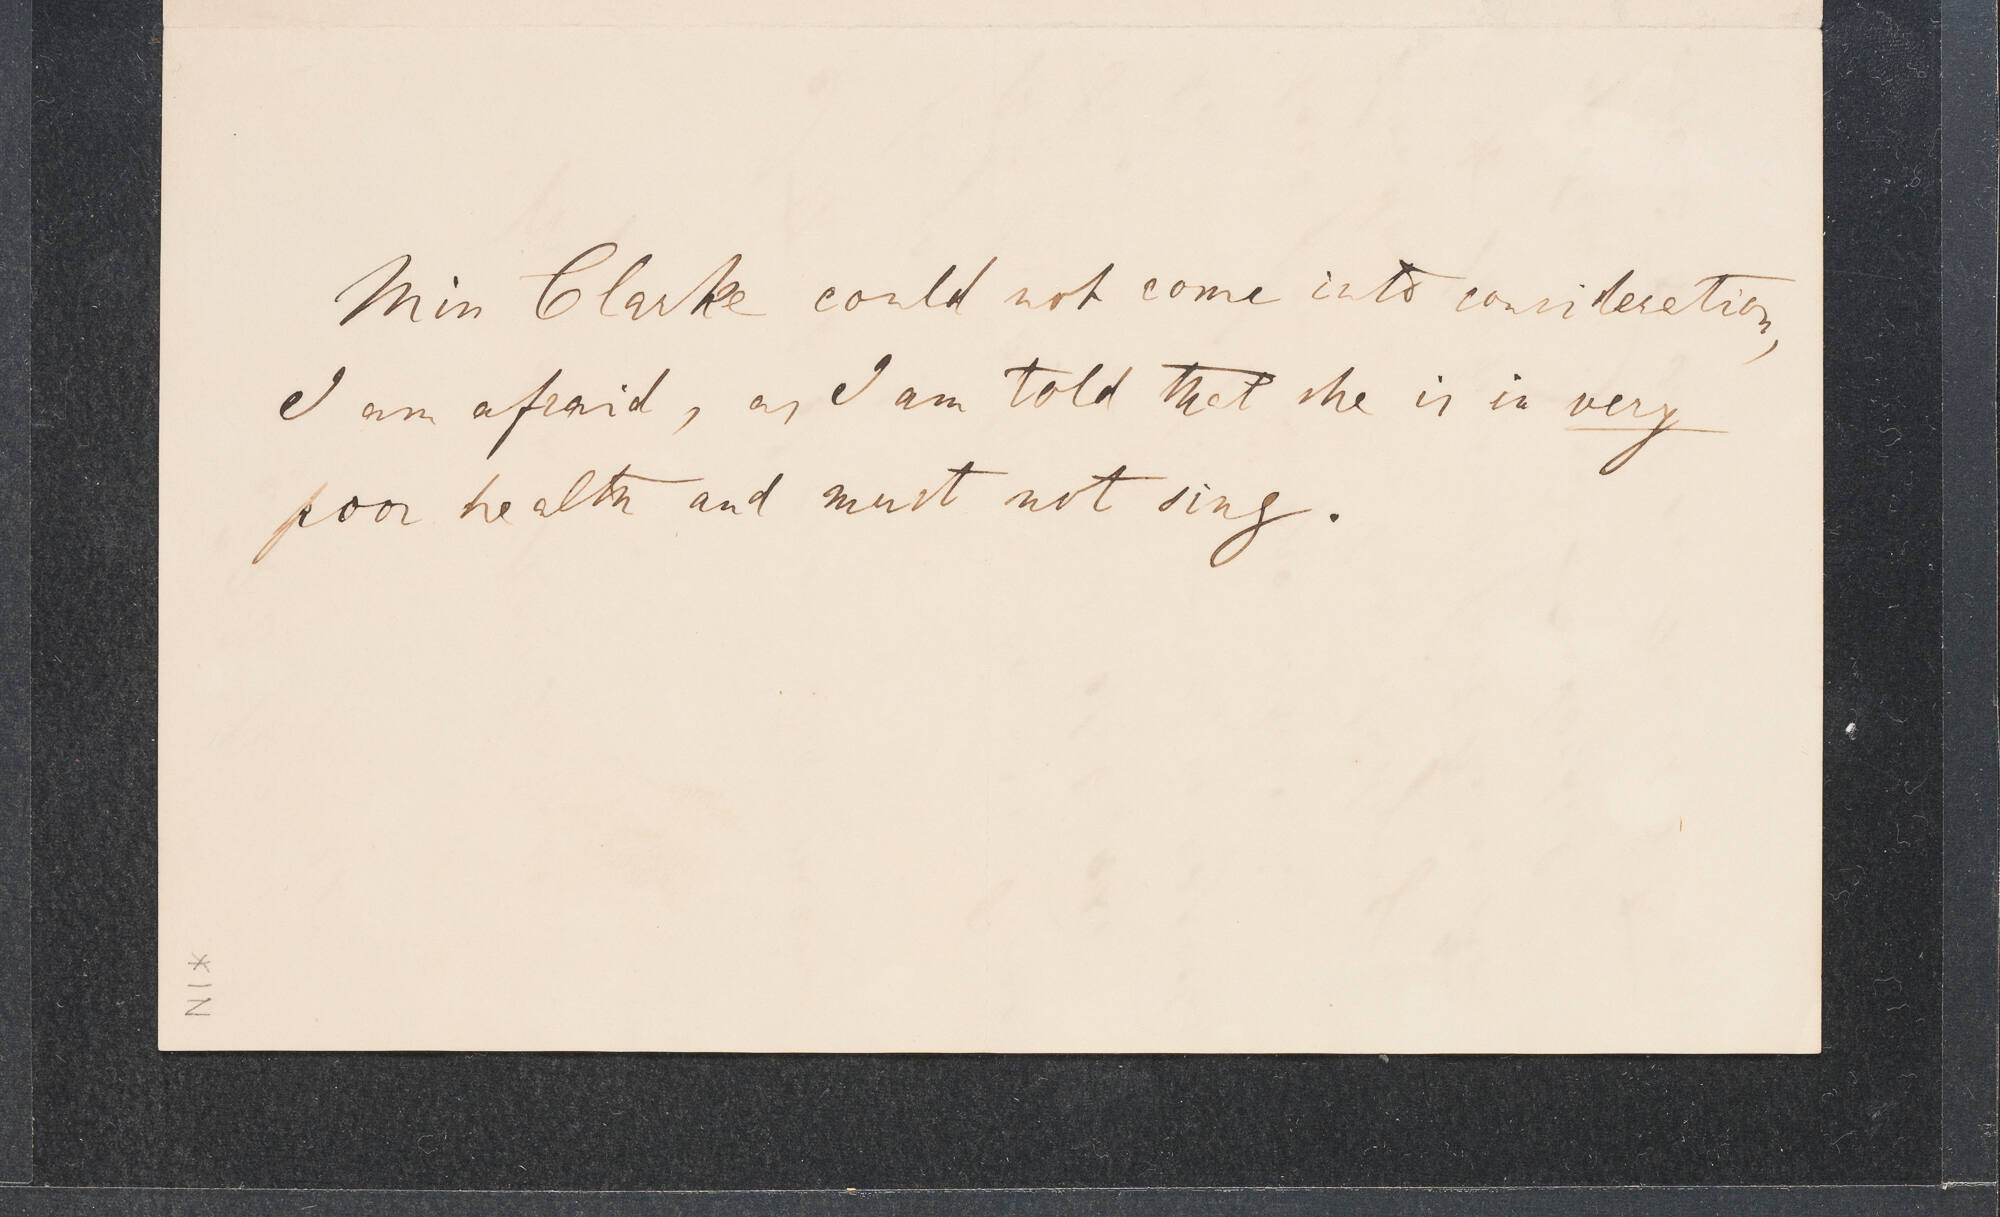 Miss Clarke could not come into consideration,
I am afraid, as I am told that she is in very
poor health and must not sing.